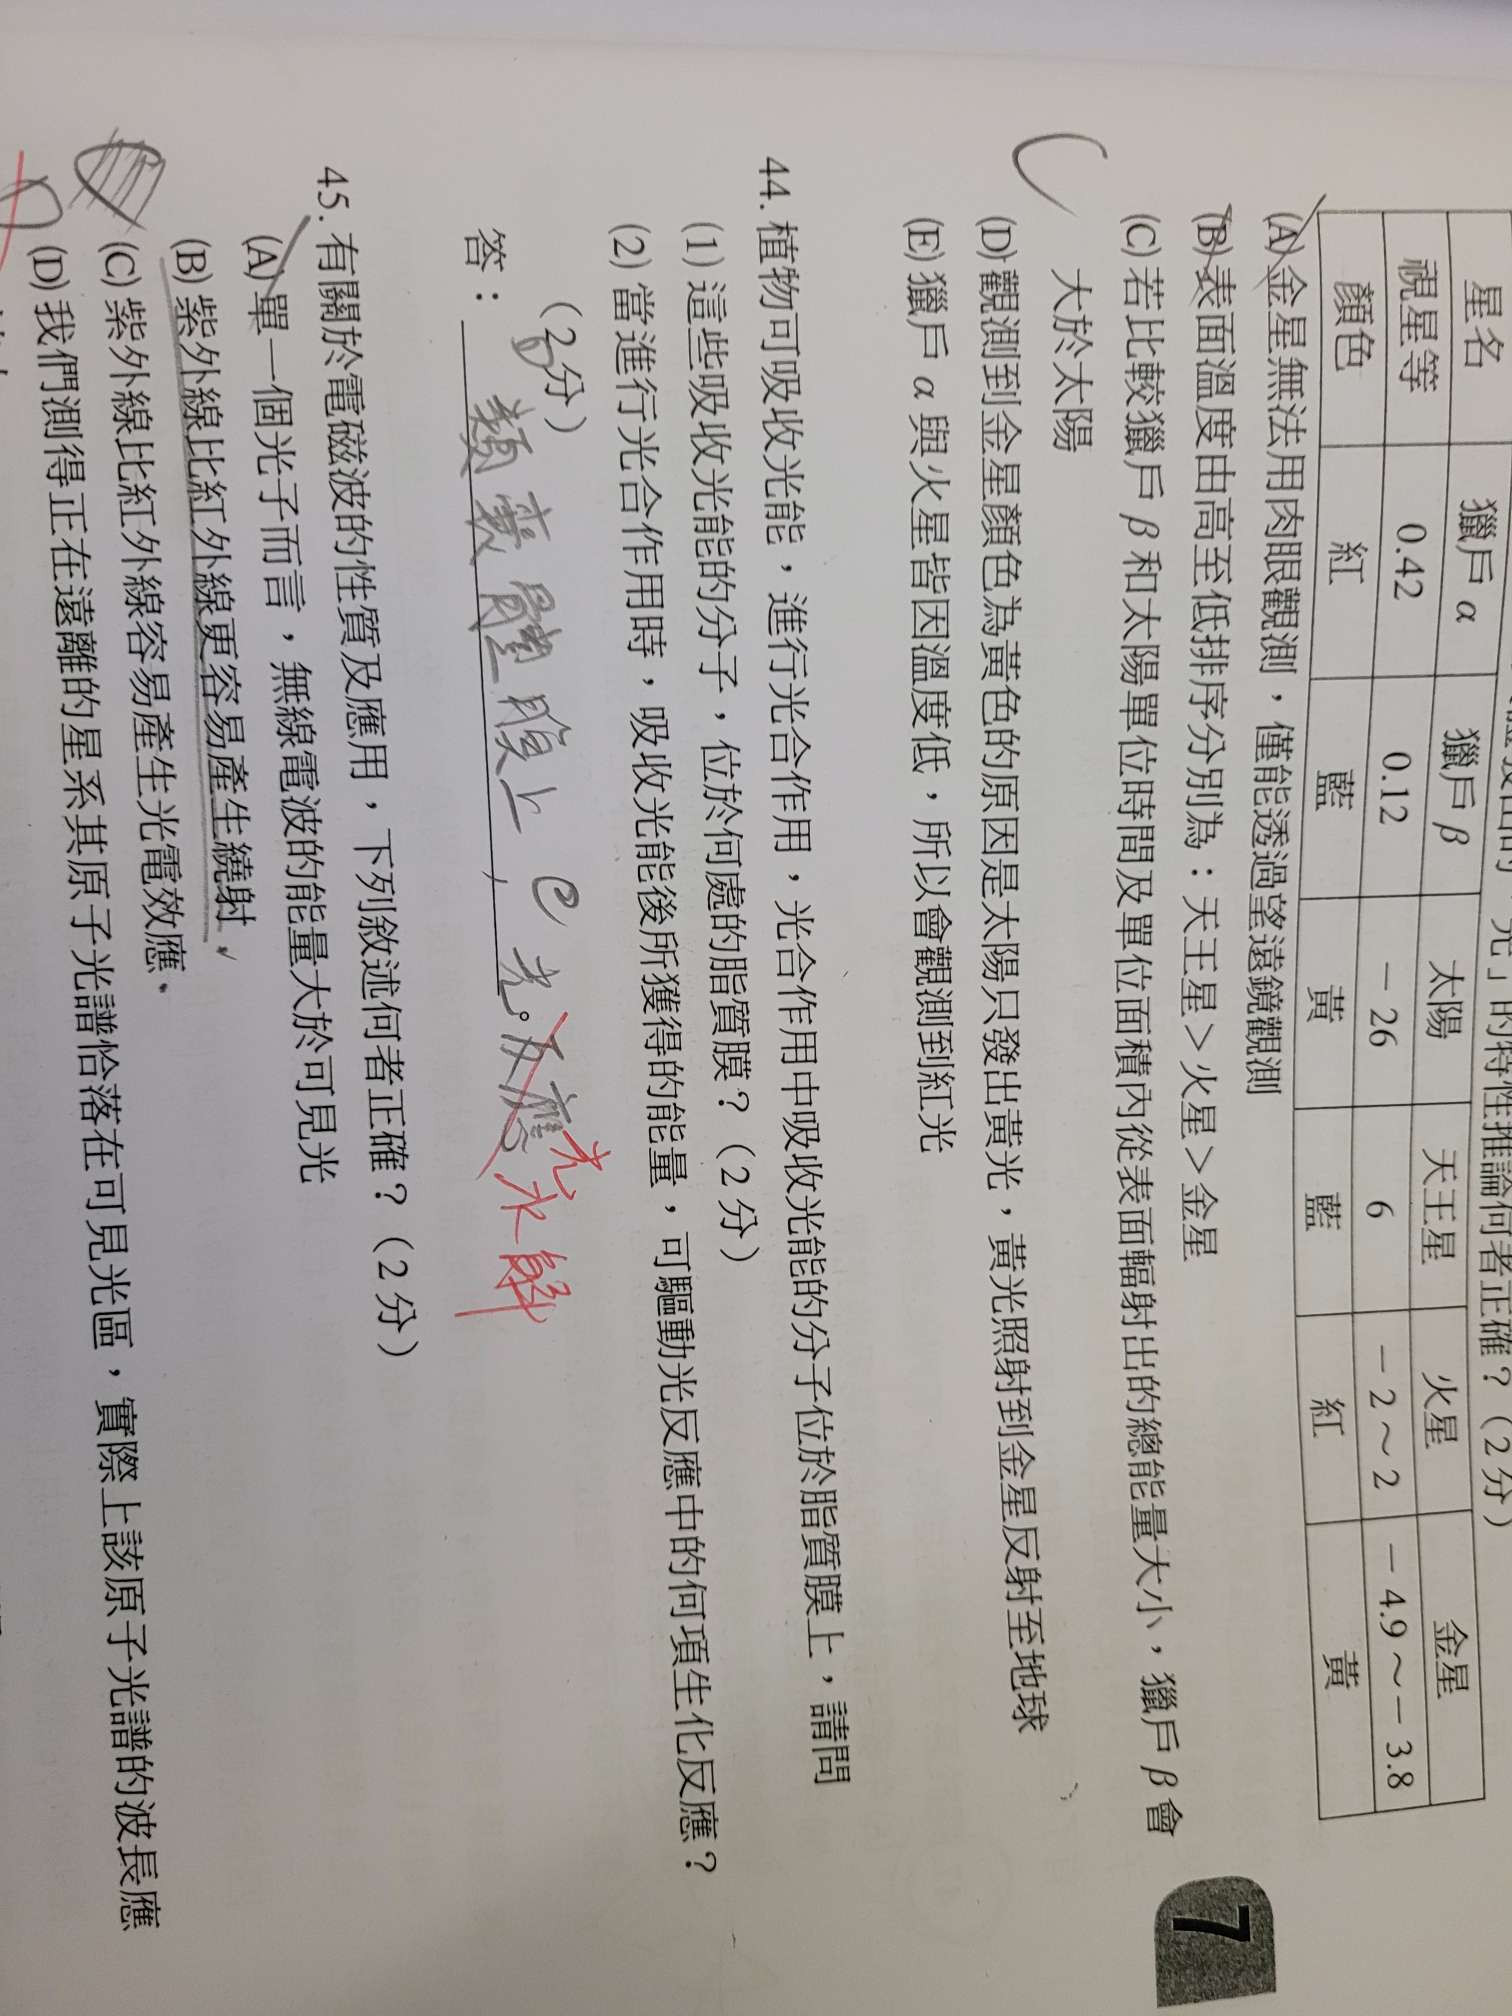 光子的特性推論何者正確？（2分）
星名 獵戶α 獵戶β 太陽 天王星 火星 金星
視星等 0.42 0.12 －26 6 －2～2 －4.9～－3.8
顏色 紅 藍 黃 藍 紅 黃
(A)金星無法用肉眼觀測，僅能透過望遠鏡觀測
(B)表面溫度由高至低排序分別為：天王星＞火星＞金星
(C)若比較獵戶β和太陽單位時間及單位面積內從表面輻射出的總能量大小，獵戶β會
大於太陽
(D)觀測到金星顏色為黃色的原因是太陽只發出黃光，黃光照射到金星反射至地球
(E)獵戶α與火星皆因溫度低，所以會觀測到紅光
C
44.植物可吸收光能，進行光合作用，光合作用中吸收光能的分子位於脂質膜上，請問
(1)這些吸收光能的分子，位於何處的脂質膜？（2分）
(2)當進行光合作用時，吸收光能後所獲得的能量，可驅動光反應中的何項生化反應？
（2分）
答：類囊體膜上，光反應 水解
45.有關於電磁波的性質及應用，下列敘述何者正確？（2分）
(A)單一個光子而言，無線電波的能量大於可見光
(B)紫外線比紅外線更容易產生繞射
(C)紫外線比紅外線容易產生光電效應
(D)我們測得正在遠離的星系其原子光譜恰落在可見光區，實際上該原子光譜的波長應
7